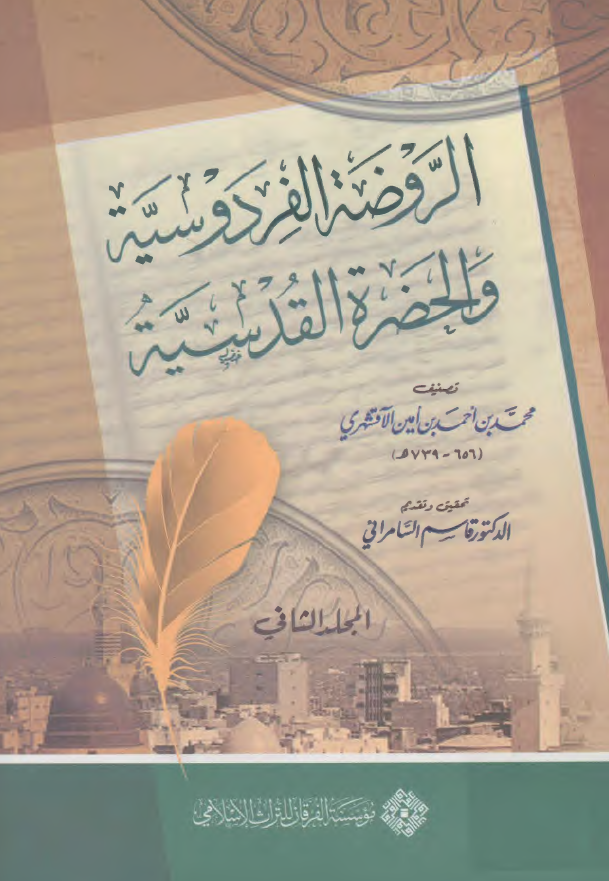 الرَّوْضَةُ الفِرْدَوْسِيَّة
وَالحَضْرَةُ القُدْسِيَّةُ
تصنيف
محمَّد بن أحمَد بن أمين الآقشهري
(٦٥٦ - ٧٣٩هـ)
تحقيق وتقديم
الدكتور قاسم السَّامرائي
المجلد الثاني
مؤسسة الفرقان للتراث الإسلامي